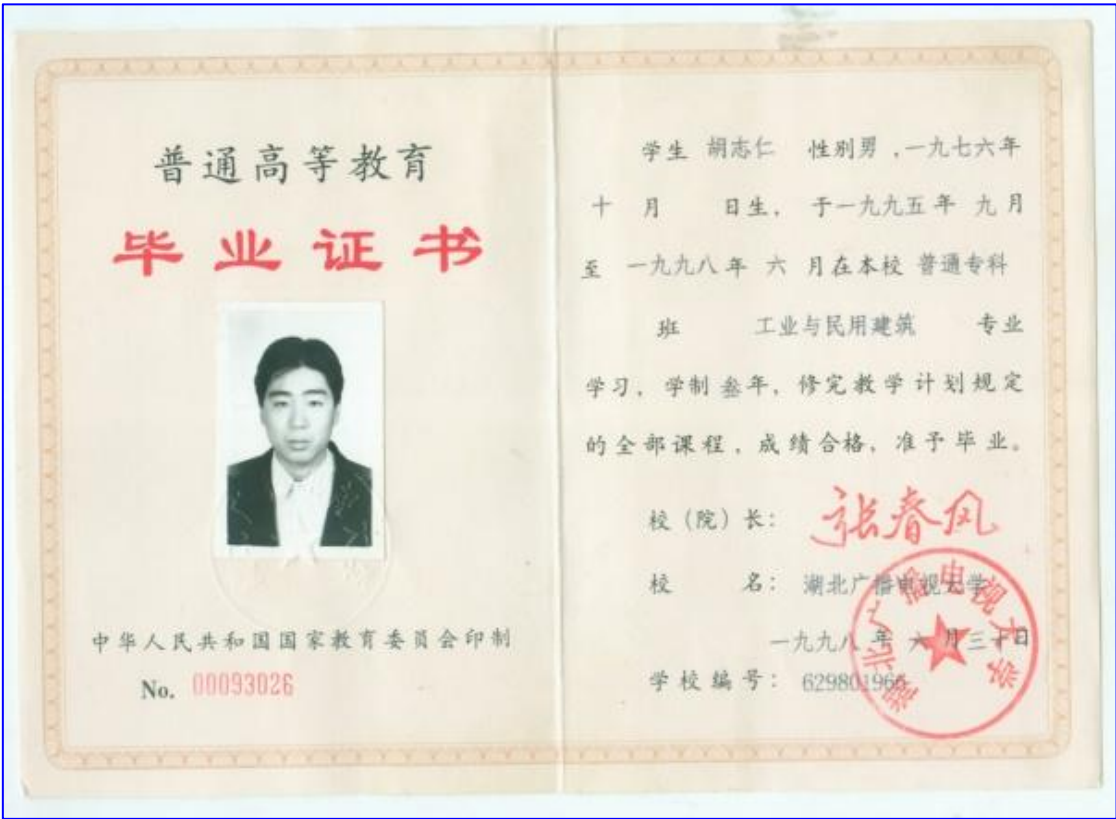 普通高等教育
毕业证书
中华人民共和国国家教育委员会印制
No. 00093026
学生 胡志仁 性别男 ,一九七六年
十 月 日生, 于一九九五年 九月
至 一九九八年 六 月在本校 普通专科
班 工业与民用建筑 专业
学习, 学制叁年, 修完教学计划规定
的全部课程, 成绩合格, 准予毕业。
校(院)长: 张春风
校 名: 湖北广播电视大学
一九九八 年 六 月三十日
学校编号: 629801966
湖北广播电视大学